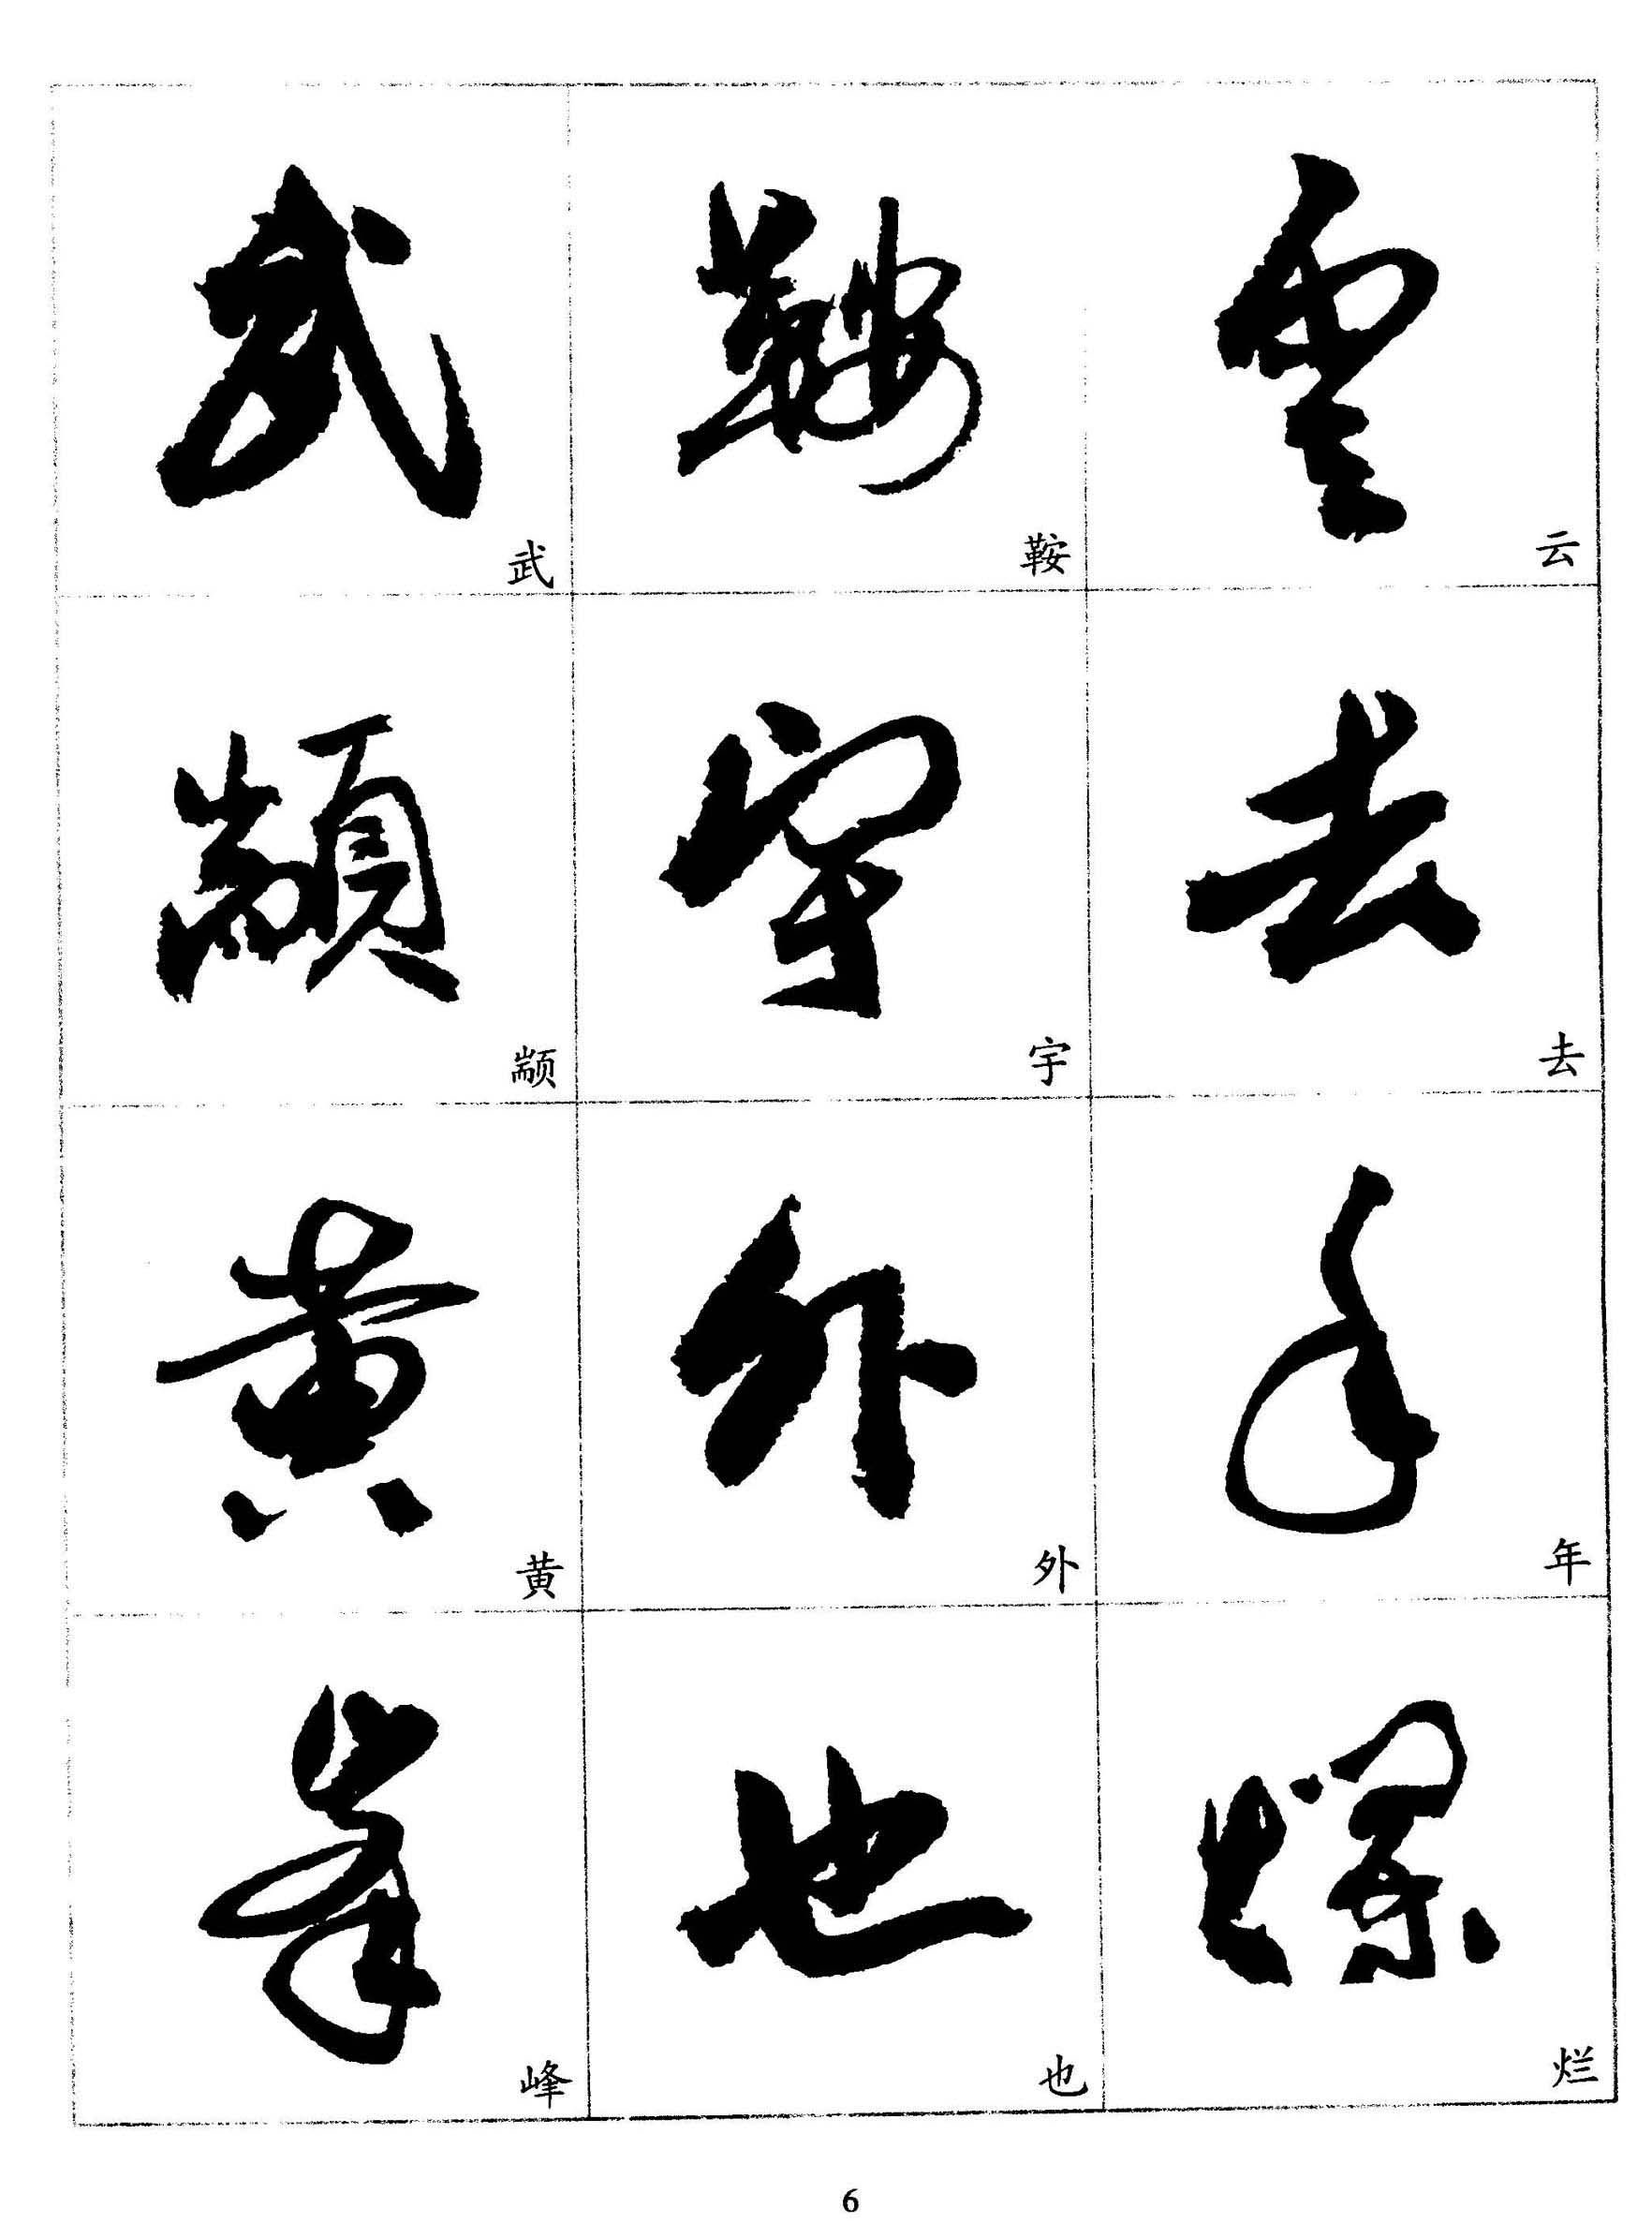 雲
云
去
去
年
年
爛
烂
鞍
鞍
宇
宇
外
外
也
也
武
武
顓
颛
黄
黄
峯
峰
6